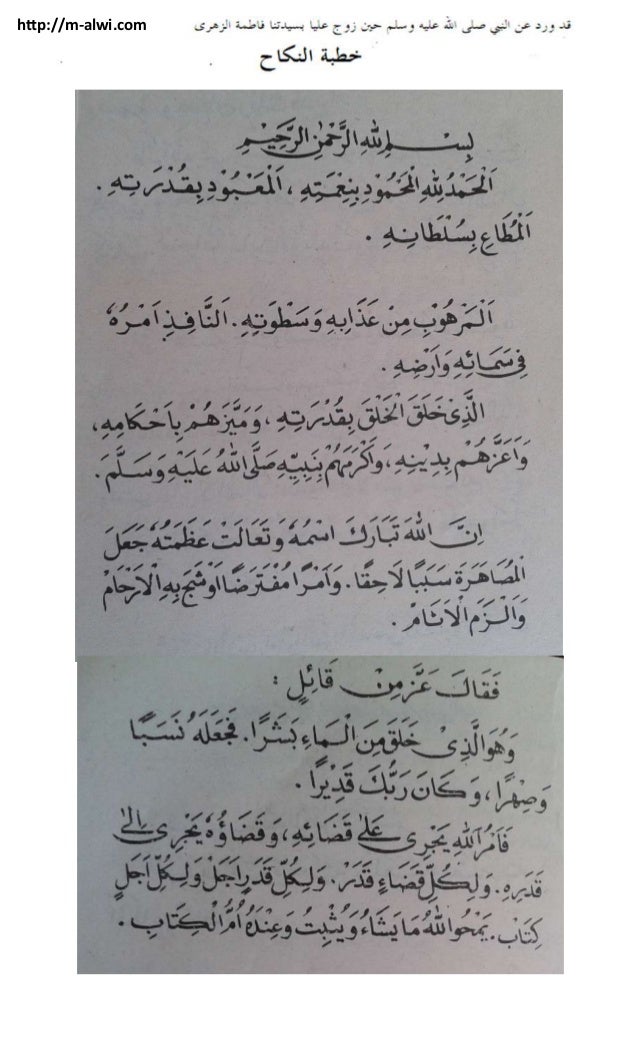 http://m-alwi.com
قد ورد عن النبي صلى الله عليه وسلم حين زوج عليا بسيدتنا فاطمة الزهرى
خطبة النكاح
بِسْمِ اللهِ الرَّحْمٰنِ الرَّحِيْمِ
اَلْحَمْدُ لِلّٰهِ الْمَحْمُوْدِ بِنِعْمَتِهِ ، اَلْمَعْبُوْدِ بِقُدْرَتِهِ .
اَلْمُطَاعِ بِسُلْطَانِهِ .
اَلْمَرْهُوْبِ مِنْ عَذَابِهِ وَسَطْوَتِهِ . اَلنَّافِذِ اَمْرُهُ
فِى سَمَائِهِ وَاَرْضِهِ .
الَّذِىْ خَلَقَ الْخَلْقَ بِقُدْرَتِهِ ، وَمَيَّزَهُمْ بِاَحْكَامِهِ ،
وَاَعَزَّهُمْ بِدِيْنِهِ ، وَاَكْرَمَهُمْ بِنَبِيِّهِ صَلَّى اللهُ عَلَيْهِ وَسَلَّمَ .
اِنَّ اللهَ تَبَارَكَ اسْمُهُ وَتَعَالَتْ عَظَمَتُهُ جَعَلَ
الْمُصَاهَرَةَ سَبَبًا لَاحِقًا . وَاَمْرًا مُفْتَرَضًا اَوْشَجَ بِهِ الْاَرْحَامَ
وَاَلْزَمَ الْاَنَامْ .
فَقَالَ عَزَّ مِنْ قَائِلٍ :
وَهُوَ الَّذِىْ خَلَقَ مِنَ الْمَاءِ بَشَرًا . فَجَعَلَهُ نَسَبًا
وَصِهْرًا ، وَكَانَ رَبُّكَ قَدِيْرًا .
فَاَمْرُ اللهِ يَجْرِى عَلَى قَضَائِهِ ، وَقَضَاؤُهُ يَجْرِى اِلَى
قَدَرِهِ . وَلِكُلِّ قَضَاءٍ قَدَرٌ . وَلِكُلِّ قَدَرٍ اَجَلٌ وَلِكُلِّ اَجَلٍ
كِتَابٌ . يَمْحُو اللهُ مَا يَشَاءُ وَيُثْبِتُ وَعِنْدَهُ اُمُّ الْكِتَابِ .